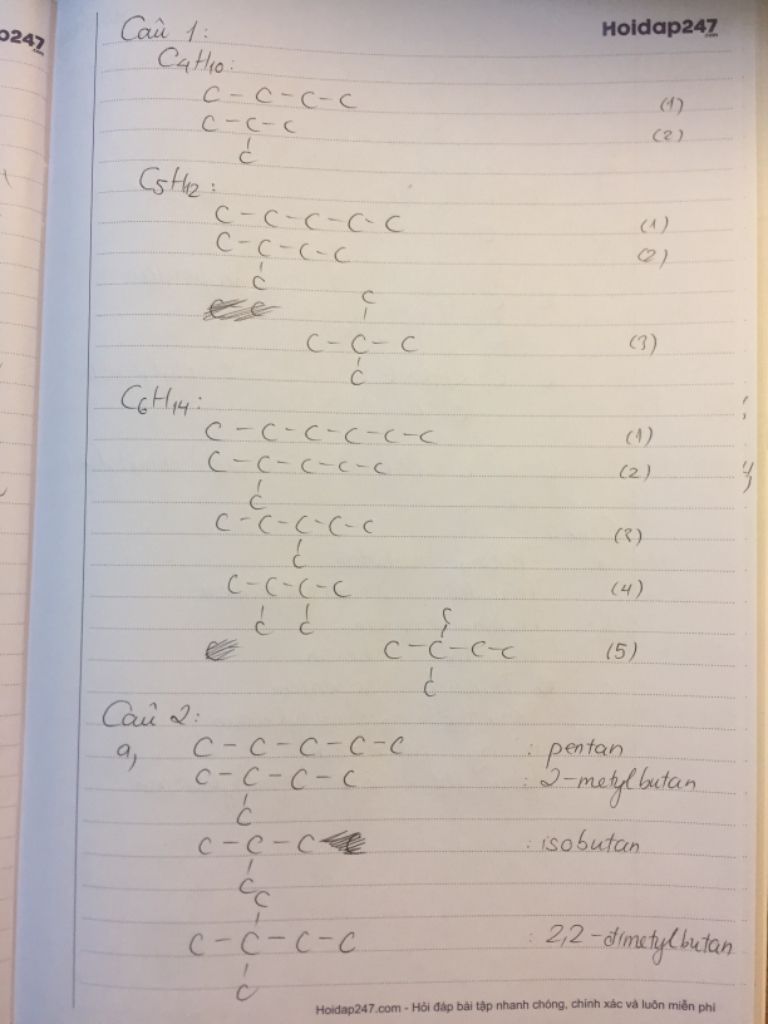 Hoidap247
.com
o247
.com
Câu 1:
C4H10:
C - C - C - C (1)
C - C - C (2)
C
C5H12:
C - C - C - C - C (1)
C - C - C - C (2)
C
C
C - C - C (3)
C
C6H14:
C - C - C - C - C - C (1)
C - C - C - C - C (2)
C
C - C - C - C - C (3)
C
C - C - C - C (4)
C C
C
C - C - C - C (5)
C
Câu 2:
a, C - C - C - C - C : pentan
C - C - C - C : 2-metylbutan
C
C - C - C : isobutan
C
C
C - C - C - C : 2,2-đimetylbutan
C
Hoidap247.com - Hỏi đáp bài tập nhanh chóng, chính xác và luôn miễn phí